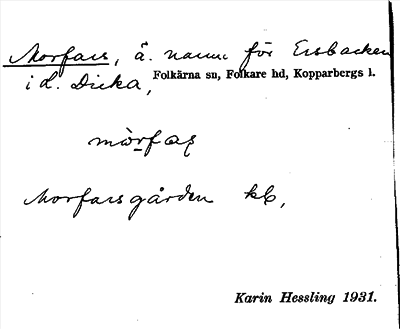 Morfars, ä. namn för Ersbacken
i d. Dicka, Folkärna sn, Folkare hd, Kopparbergs l.
mòrfaş
Morfarsgården kb,
Karin Hessling 1931.